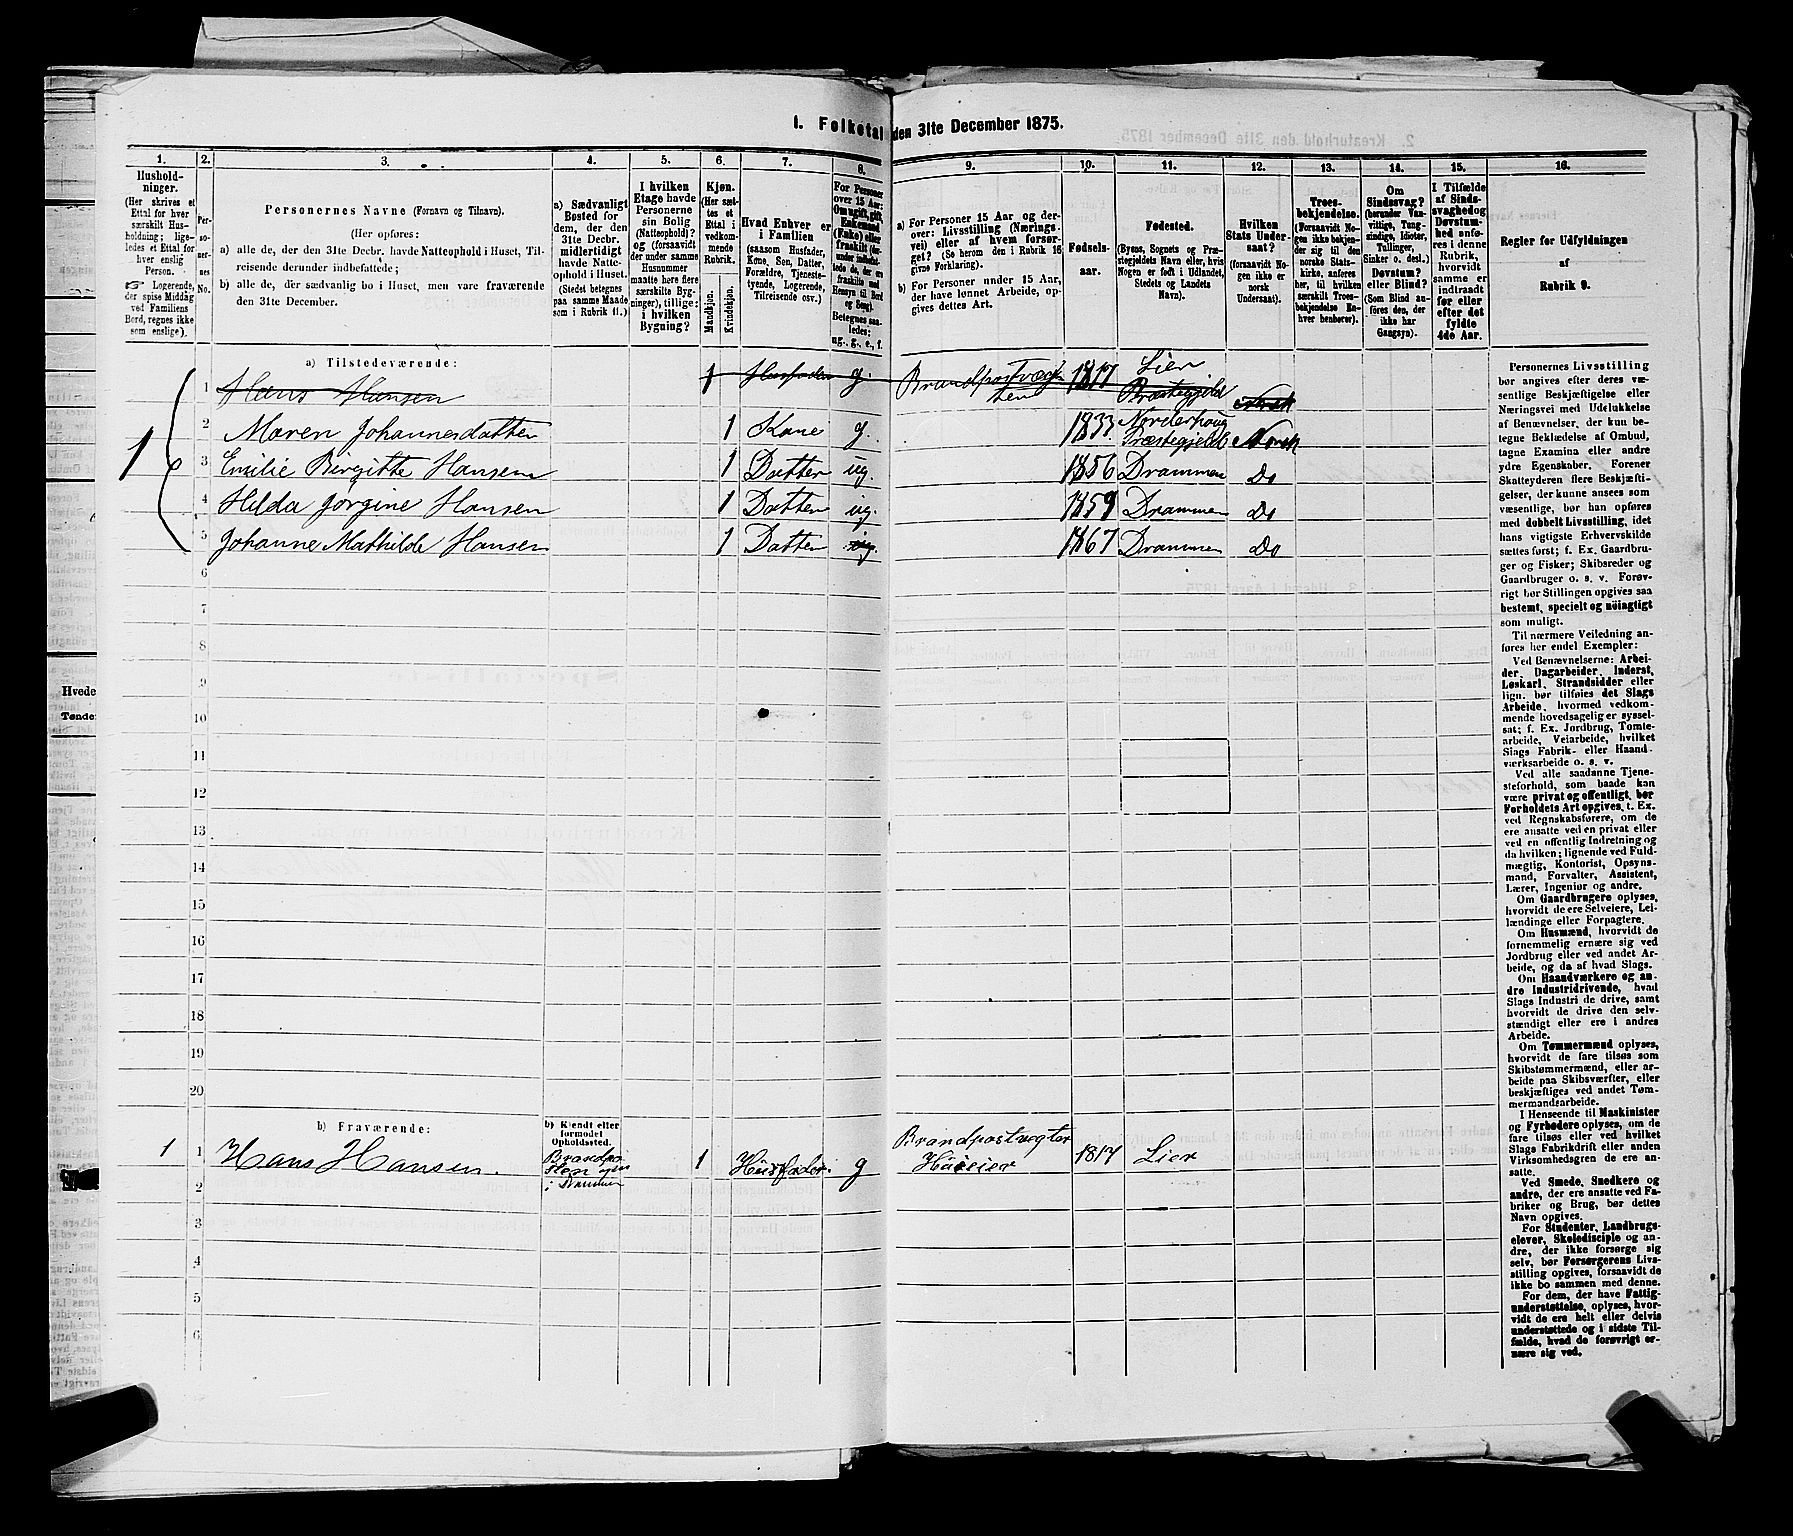 1. Folketal den 31te December 1875.
1. 2. 3. 4. 5. 6. 7. 8. 9. 10. 11. 12. 13. 14. 15. 16.
Husholdninger.
(Her skrives et
Ettal for hver
særskilt Husholdning; ligeledes et Ettal for
hver enslig
Person.
☞ Logerende,
der spise Middag
ved Familiens
Bord, regnes ikke
som enslige).
Personernes No.
Personernes Navne (Fornavn og Tilnavn).
(Her opføres:
a) alle de, der den 31te Decbr. havde Natteophold i Huset, Tilreisende derunder indbefattede;
b) alle de, der sædvanlig bo i Huset, men vare fraværende
den 31te December.
a) Sædvanligt
Bosted for
dem, der den
31te Decbr.
midlertidigt
havde Natteophold i Huset.
(Stedet betegnes
paa samme Maade
som i Rubrik 11.)
I hvilken
Etage havde
Personerne
sin Bolig
(Natteophold)?
og (forsaavidt
der under samme
Husnummer
maatte høre flere
særskilte Bygninger), tillige:
i hvilken
Bygning?
Kjøn.
(Her sættes et
Ettal i
vedkommende
Rubrik.
Mandkjøn.
Kvindekjøn.
Hvad Enhver er
i Familien
(saasom Husfader,
Kone, Søn, Datter,
Forældre, Tjenestetyende, Logerende,
Tilreisende osv.)
For Personer
over 15 Aar:
Om ugift, gift,
Enkemand
(Enke) eller
fraskilt
Betegnes saaledes:
ug., g., e., f.
a) For Personer 15 Aar og derover: Livsstilling (Næringsvei) eller af hvem forsørget? (Se herom den i Rubrik 16
givne Forklaring).
b) For Personer under 15 Aar,
der have lønnet Arbeide, opgives dettes Art.
Fødselsaar.
Fødested.
(Byens, Sognets og Præstegjeldets Navn eller, hvis
Nogen er født i Udlandet,
Stedets og Landets
Navn).
Hvilken
Stats Undersaat?
(forsaavidt Nogen ikke er
norsk
Undersaat).
Troesbekjendelse.
(Forsaavidt Nogen ikke bekjender sig til den
norske Statskirke, anføres
her, til hvilken
særskilt Troesbekjendelse Enhver henhører).
Om
Sindssvag?
(herunder Vanvittige, Tungsindige, Idioter,
Tullinger,
Sinker o. desl.)
Døvstum?
eller Blind?
(Som Blind anføres den, der
ikke har
Gangsyn).
I Tilfælde
af Sindssvaghed og
Døvstumhed anføres i denne
Rubrik,
hvorvidt
samme er
indtraadt
før eller
efter det
fyldte
4de Aar.
Regler for Udfyldningen
af
Rubrik 9.
a) Tilstedeværende:
1 1 Hans Hansen 1 Husfader g. Brandpostvægtere 1817 Lier Præstegjeld Norsk
2 Maren Johannesdatter 1 Kone g. 1833 Norderhoug Præstegjeld Norsk
3 Emilie Birgitte Hansen 1 Datter ug. 1856 Drammen Do
4 Hilda Jørgine Hansen 1 Datter ug. 1859 Drammen Do
5 Johanne Mathilde Hansen 1 Datter ug. 1867 Drammen Do
6
7
8
9
10
11
12
13
14
15
16
17
18
19
20
b) Fraværende:
b) Kjendt eller
formodet
Opholdssted.
1 1 Hans Hansen. i Drammen 1 Husfader g Brandpostvegter Huseier 1817 Lier
2
3
4
5
6
Personernes Livsstilling
bør angives efter deres væsentlige Beskjæftigelse eller
Næringsvei med Udelukkelse
af Benævnelser, der kun betegne Beklædelse af Ombud,
tagne Examina eller andre
ydre Egenskaber. Forener
Skatteyderen flere Beskjæftigelser, der kunne ansees som
væsentlige, bør han opføres
med dobbelt Livsstilling, idet
hans vigtigste Erhvervskilde
sættes først; f. Ex. Gaardbruger og Fisker; Skibsreder og
Gaardbruger o. s. v. Forøvrigt bør Stillingen opgives saa
bestemt, specielt og nøiagtigt
som muligt.
Til nærmere Veiledning anføres her endel Exempler:
Ved Benævnelserne: Arbeider, Dagarbeider, Inderst,
Løskarl, Strandsidder eller
lign. bør tilføies det Slags
Arbeide, hvormed vedkommende hovedsagelig er sysselsat; f. Ex. Jordbrug, Tomtearbeide, Veiarbeide, hvilket
Slags Fabrik- eller Haandværksarbeide o. s. v.
Ved alle saadanne Tjenesteforhold, som baade kan
være privat og offentligt, bør
Forholdets Art opgives, t. Ex.
ved Regnskabsførere, om de
ere ansatte ved en privat eller
ved en offentlig Indretning og
da hvilken; lignende ved Fuldmægtig, Kontorist, Opsynsmand, Forvalter, Assistent,
Lærer, Ingeniør og andre.
Om Gaardbrugere oplyses,
hvorvidt de ere Selveiere, Leilændinge eller Forpagtere.
Om Husmænd, hvorvidt de
fornemmelig ernære sig ved
Jordbrug eller ved andet Arbeide, og da af hvad Slags.
Om Haandværkere og andre Industridrivende, hvad
Slags Industri de drive, samt
hvorvidt de drive den selvstændigt eller ere i andres
Arbeide.
Om Tømmermænd oplyses,
hvorvidt de fare tilsøs som
Skibstømmermænd, eller arbeide paa Skibsværfter, eller
beskjæftiges ved andet Tømmermandsarbeide.
I Henseende til Maskinister
og Fyrbødere oplyses, om de
fare tilsøs eller ved hvilket
Slags Fabrikdrift eller anden
Virksomhedsgren de ere ansatte.
Ved Smede, Snedkere og
andre, der ere ansatte ved Fabriker og Brug, bør dettes
Navn opgives.
For Studenter, Landbrugselever, Skoledisciple og andre, der ikke forsørge sig
selv, bør Forsørgerens Livsstilling opgives, forsaavidt de
ikke bo sammen med denne.
For dem, der have Fattigunderstøttelse, oplyses, hvorvidt de ere helt eller delvis
understøttede og i sidste Tilfælde, hvad de forøvrigt ernære sig ved.
Hvede
Tønder